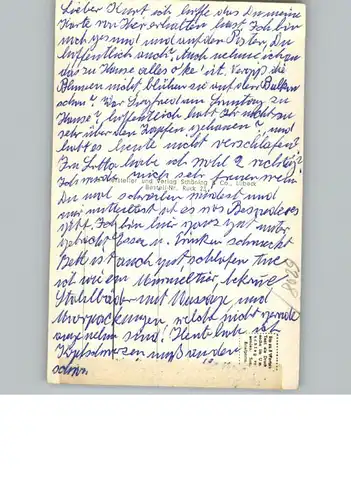 Lieber Kurt ich hoffe das Du meine
Karte von hier erhalten hast. Ich bin
noch gesund und auf den Posten. Du
hoffentlich auch? Auch nehme ich an
das zu Hause alles oke ist. Vergiß die
Blumen nicht blühen sie auf den Balkon
schon? War Siegfried am Sonntag zu
Hause? hoffentlich habt Ihr nicht zu
sehr über den Zapfen gehauen? und
habt es heute nicht verschlafen?
Im Lotto habe ich wohl 2 richtig?
Ich würde mich sehr freuen wenn
Hersteller und Verlag Schöning & Co., Lübeck
Bestell-Nr. Ruck 22
Du mal schreiben würdest und
mir mitteilst ob es was Besonderes
gibt. Ich bin hier ganz gut unter
gebracht Essen u. Trinken schmeckt
Bett ist auch gut schlafen tue
ich wie ein Murmeltier, bekomme
Stahlbäder mit Massage und
Moorpackungen welche nicht gerade
angenehm sind. Heute habe ich
Kopfschmerzen muß an den